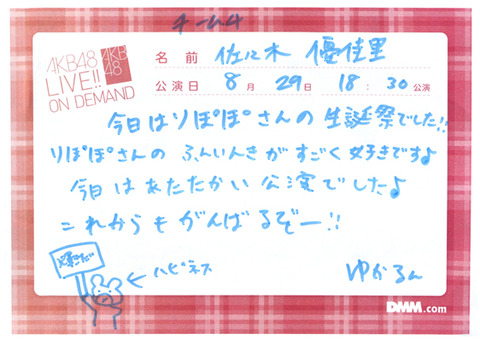 チーム4
AKB48
LIVE!!
ON DEMAND
AKB
48
名前 佐々木 優佳里
公演日 8月29日 18:30公演
今日はりぽぽさんの生誕祭でした!!
りぽぽさんのふんいんきがすごく好きです♪
今日はあたたかい公演でした♪
これからもがんばるぞー!!
←ハピネス
ゆかるん
DMM.com